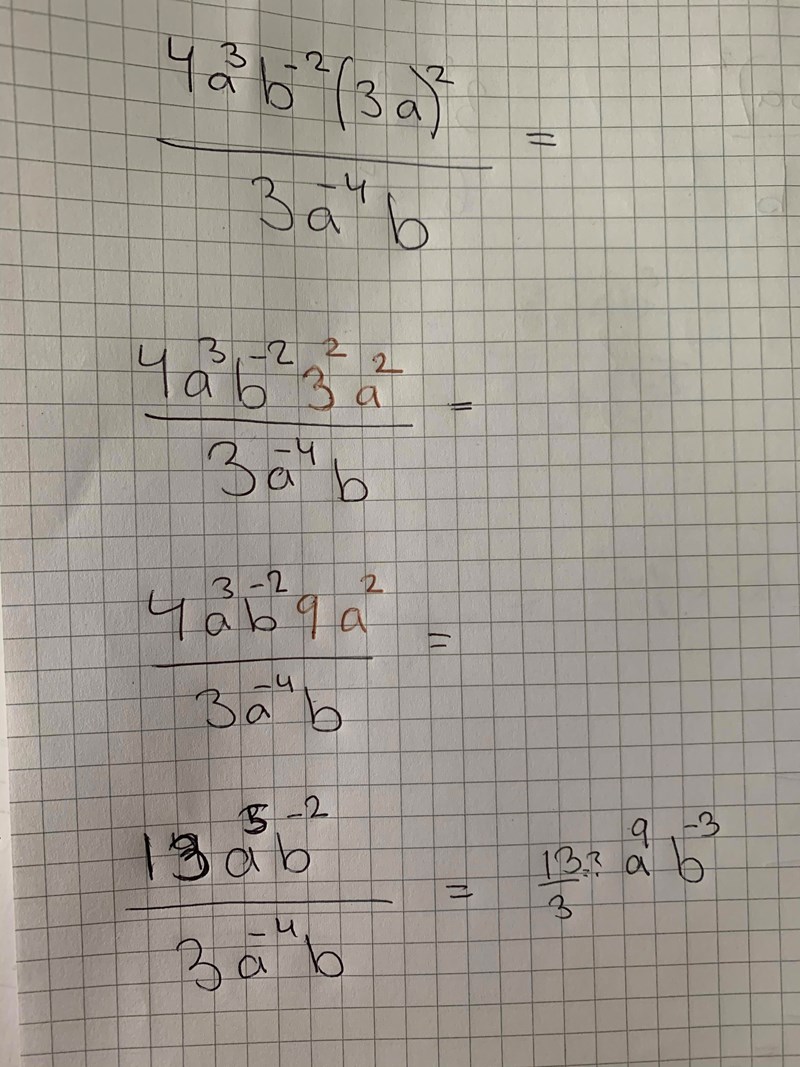 4a³b⁻²(3a)²
=
3a⁻⁴b
4a³b⁻²3²a²
=
3a⁻⁴b
4a³b⁻²9a²
=
3a⁻⁴b
13a⁵b⁻²
=
3a⁻⁴b
13? a⁹b⁻³
3